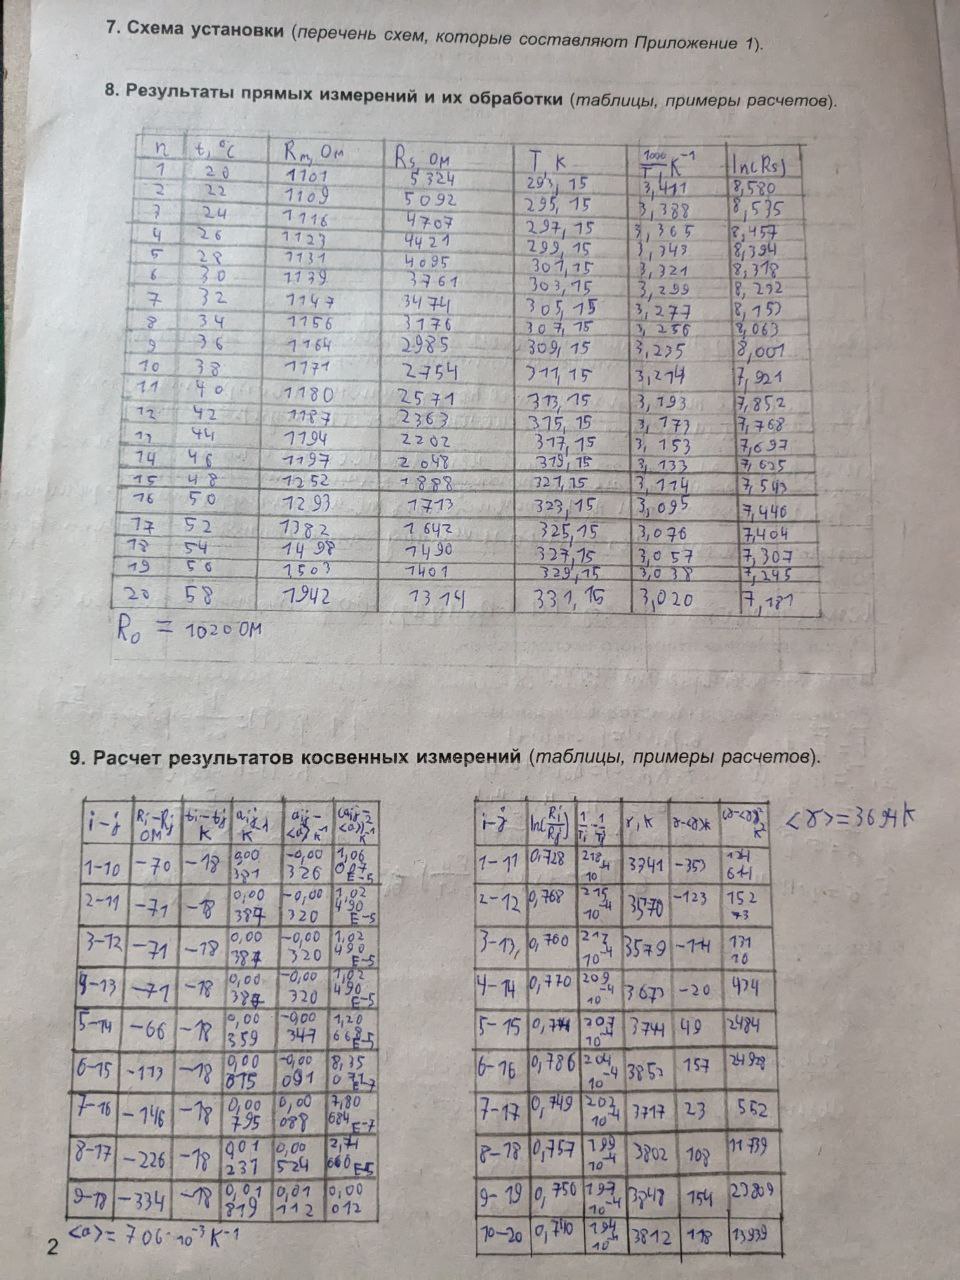 7. Схема установки (перечень схем, которые составляют Приложение 1).
8. Результаты прямых измерений и их обработки (таблицы, примеры расчетов).
n t, °C Rm, Ом Rs, Ом T, К 1000/T, K⁻¹ ln(Rs)
1 20 1101 5324 293,15 3,411 8,580
2 22 1109 5092 295,15 3,388 8,535
3 24 1116 4707 297,15 3,365 8,457
4 26 1123 4421 299,15 3,343 8,394
5 28 1131 4095 301,15 3,321 8,318
6 30 1139 3761 303,15 3,299 8,232
7 32 1147 3474 305,15 3,277 8,153
8 34 1156 3176 307,15 3,256 8,063
9 36 1164 2985 309,15 3,235 8,001
10 38 1171 2754 311,15 3,214 7,921
11 40 1180 2571 313,15 3,193 7,852
12 42 1187 2363 315,15 3,173 7,768
13 44 1194 2202 317,15 3,153 7,697
14 46 1197 2048 319,15 3,133 7,625
15 48 1252 1888 321,15 3,114 7,543
16 50 1293 1713 323,15 3,095 7,446
17 52 1382 1642 325,15 3,076 7,404
18 54 1498 1490 327,15 3,057 7,307
19 56 1503 1401 329,15 3,038 7,245
20 58 1942 1314 331,15 3,020 7,181
R₀ = 1020 Ом
9. Расчет результатов косвенных измерений (таблицы, примеры расчетов).
i-j Ri-Rj Ом ti-tj К
1-10 -70 -18 0,00381 -0,00326 1,06 E-5
2-11 -71 -18 0,00387 -0,00320 1,02490 E-5
3-12 -71 -18 0,00387 -0,00320 1,02490 E-5
4-13 -71 -18 0,00387 -0,00320 1,02490 E-5
5-14 -66 -18 0,00359 -0,00347 1,20668 E-5
6-15 -113 -18 0,00615 -0,00091 8,35071 E-7
7-16 -146 -18 0,00795 0,00088 7,80684 E-7
8-17 -226 -18 0,01231 0,00524 2,74660 E-5
9-18 -334 -18 0,01819 0,01112 0,00012
<α> = 706·10⁻³ K⁻¹
i-j ln(Ri/Rj) 1/Ti - 1/Tj γ, К <γ> = 3694 К
1-11 0,728 218 10⁻⁴ 3341 -353 124611
2-12 0,768 215 10⁻⁴ 3570 -123 15273
3-13 0,760 212 10⁻⁴ 3579 -114 13110
4-14 0,770 209 10⁻⁴ 3673 -20 434
5-15 0,774 207 10⁻⁴ 3744 49 2484
6-16 0,786 204 10⁻⁴ 3852 157 24928
7-17 0,749 202 10⁻⁴ 3717 23 552
8-18 0,757 199 10⁻⁴ 3802 108 11739
9-19 0,750 197 10⁻⁴ 3848 154 23809
10-20 0,740 194 10⁻⁴ 3812 118 13939
2